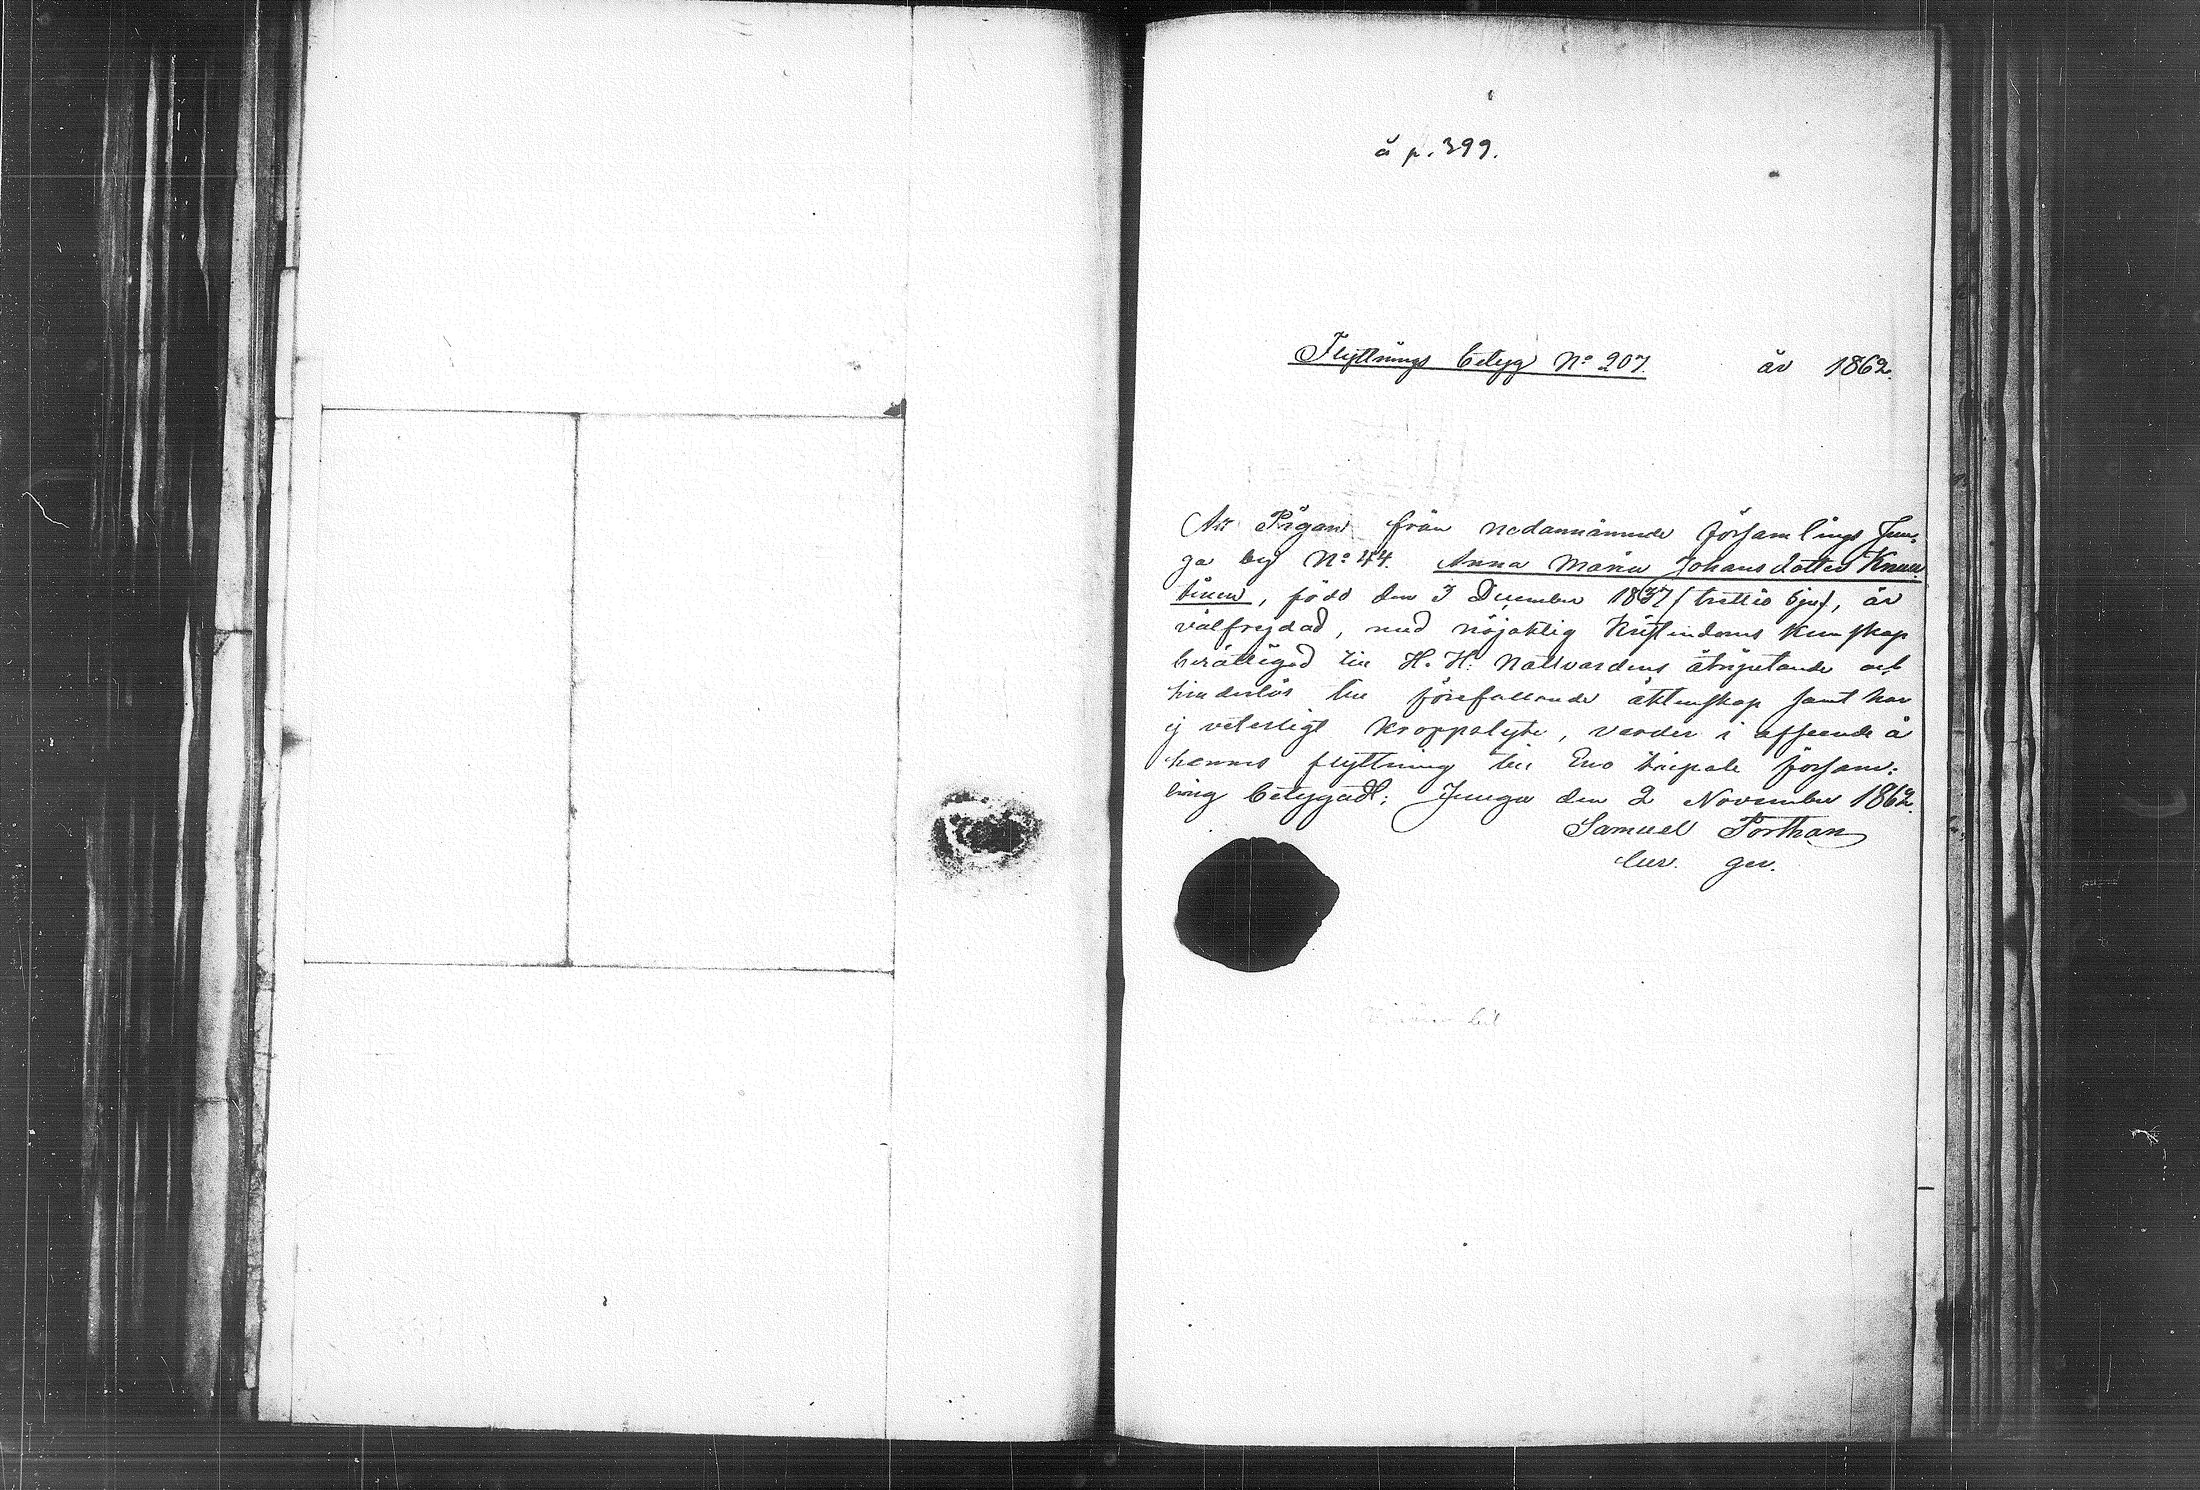 å p. 399.
Flyttnings betyg No 207. år 1862.
Att Pigan från nedannämnde församlings Jun=
ga by No 44. Anna Maria Johansdotter Knuu
tinen, född den 3 December 1837 (trettio sju), är
välfrejdad, med nöjaktig Kristindoms Kunskap
berättigad till H. H. Nattvardens åtnjutande och
hinderlös till förefallande äktenskap samt har
ej veterligt Kroppslyte, varder i afseende å
hennes flyttning till Eno församl=
ing betygadt; Juuga den 2 November 1862.
Samuel Porthan
ger.